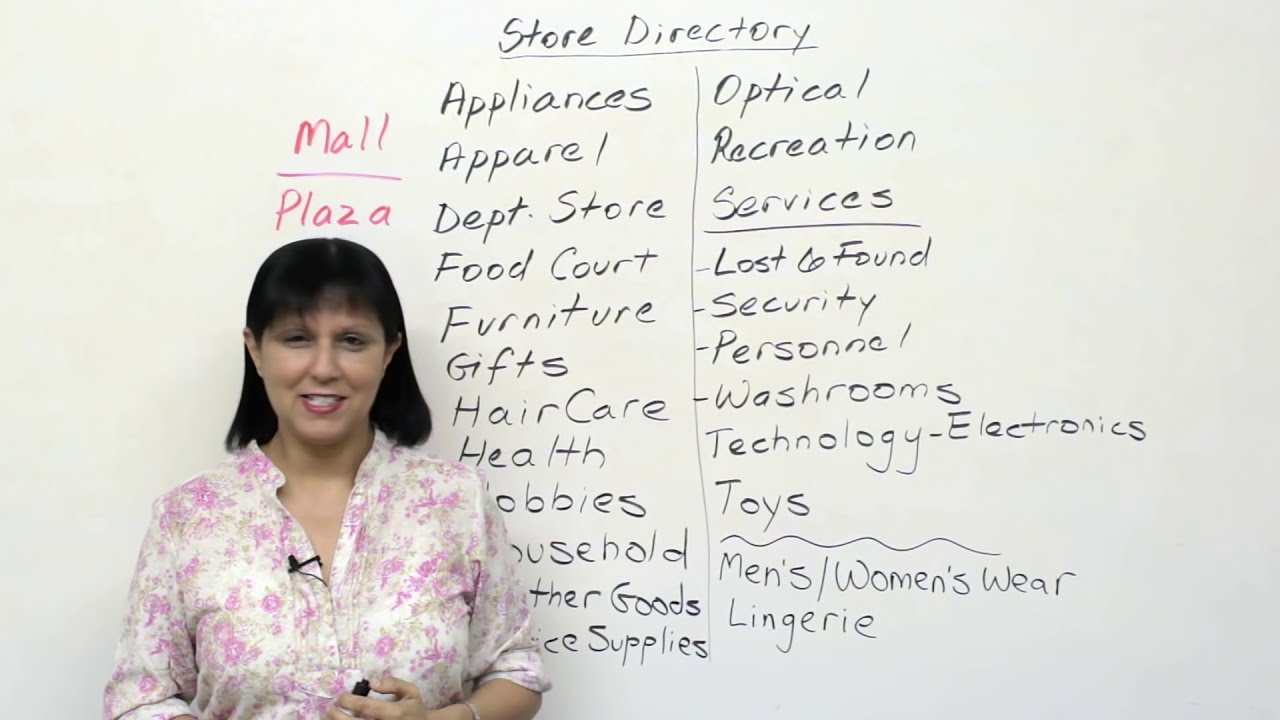 Store Directory
Mall
Plaza
Appliances
Apparel
Dept. Store
Food Court
Furniture
Gifts
Hair Care
Health
obbies
ousehold
ther Goods
ice Supplies
Optical
Recreation
Services
-Lost & Found
-Security
-Personnel
-Washrooms
Technology-Electronics
Toys
Men's/Women's Wear
Lingerie